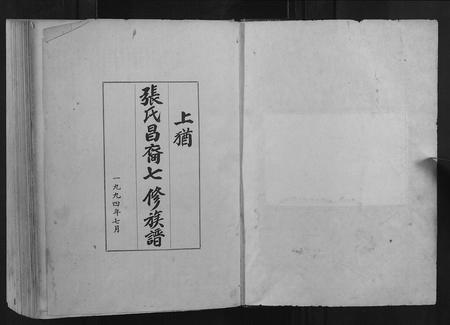 上猶
張氏昌裔七修族譜
一九九四年七月